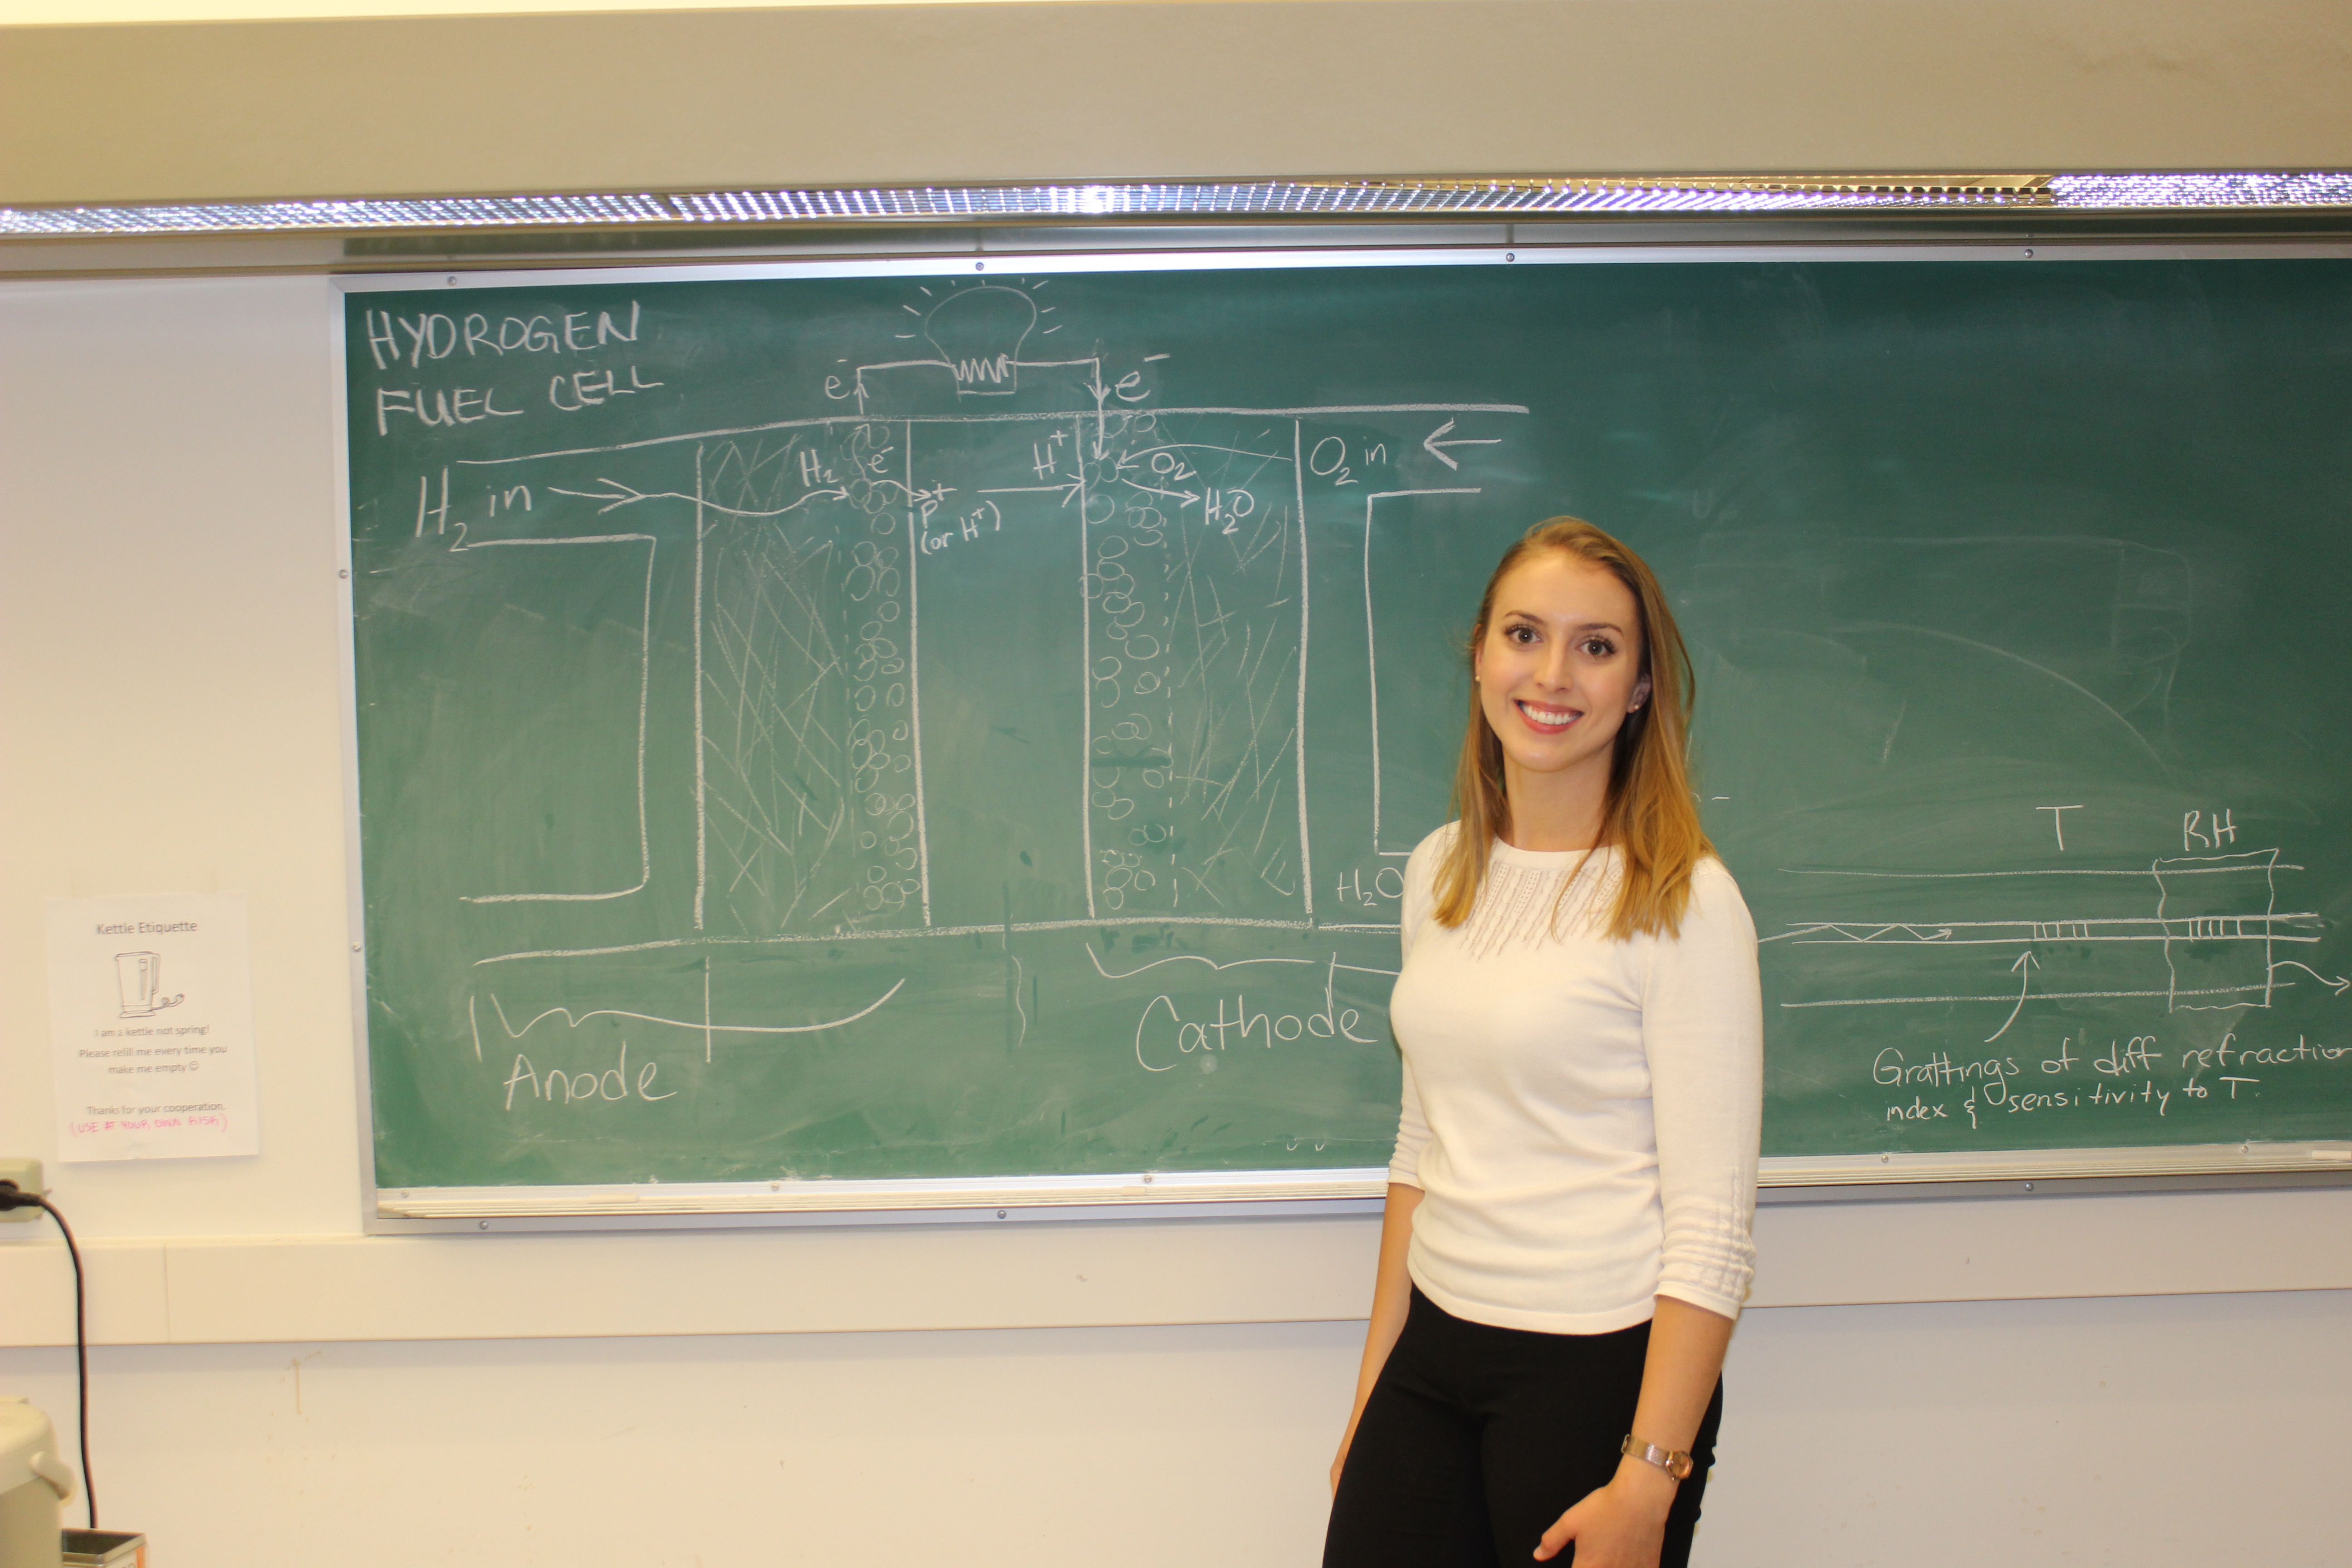 HYDROGEN
FUEL CELL
e⁻
e⁻
H₂ in
H₂
e⁻
p⁺
(or H⁺)
H⁺
O₂
H₂O
O₂ in
H₂O
Anode
Cathode
T
RH
Grattings of diff refraction
index & sensitivity to T.
Kettle Etiquette
I am a kettle not spring!
Please refill me every time you
make me empty ☺
Thanks for your cooperation.
(USE AT YOUR OWN RISK)